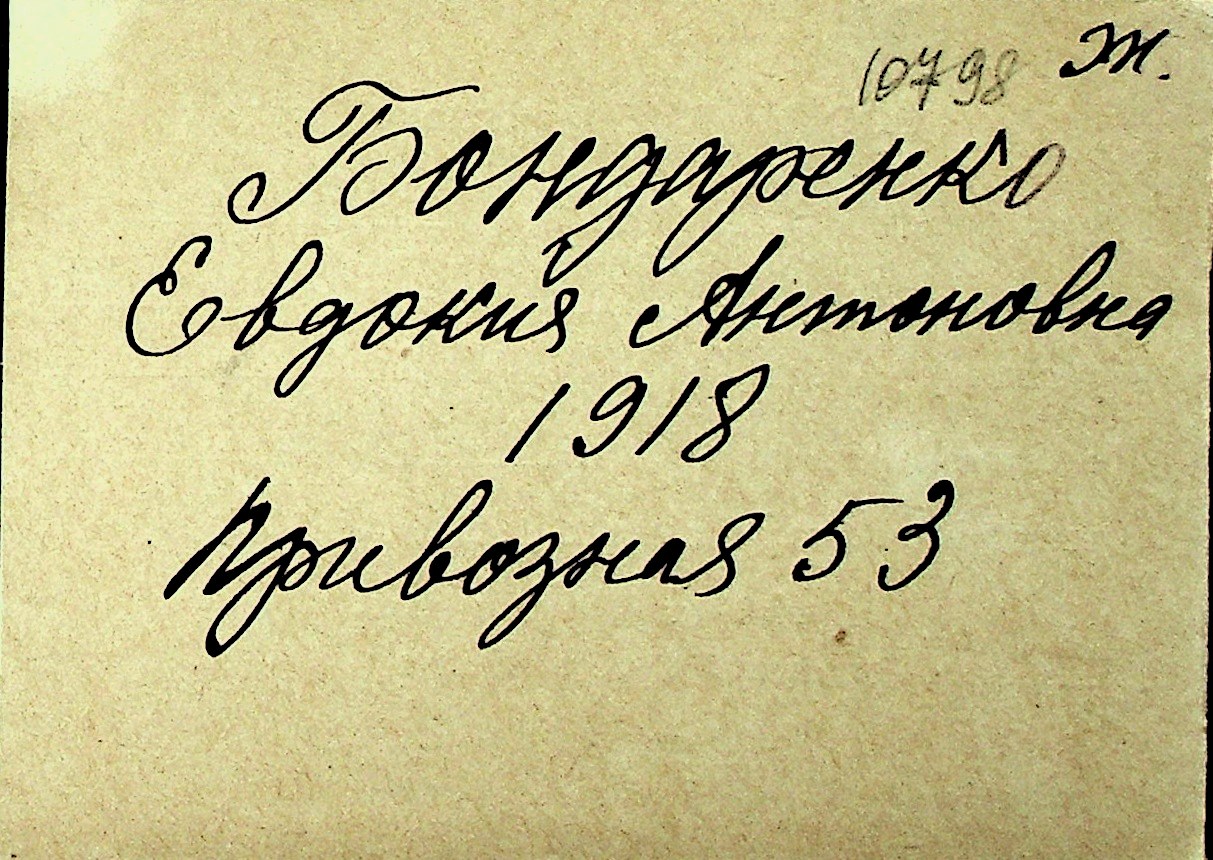 10798 Ж.
Бондаренко
Евдокия Антоновна
1918
Привозная 53